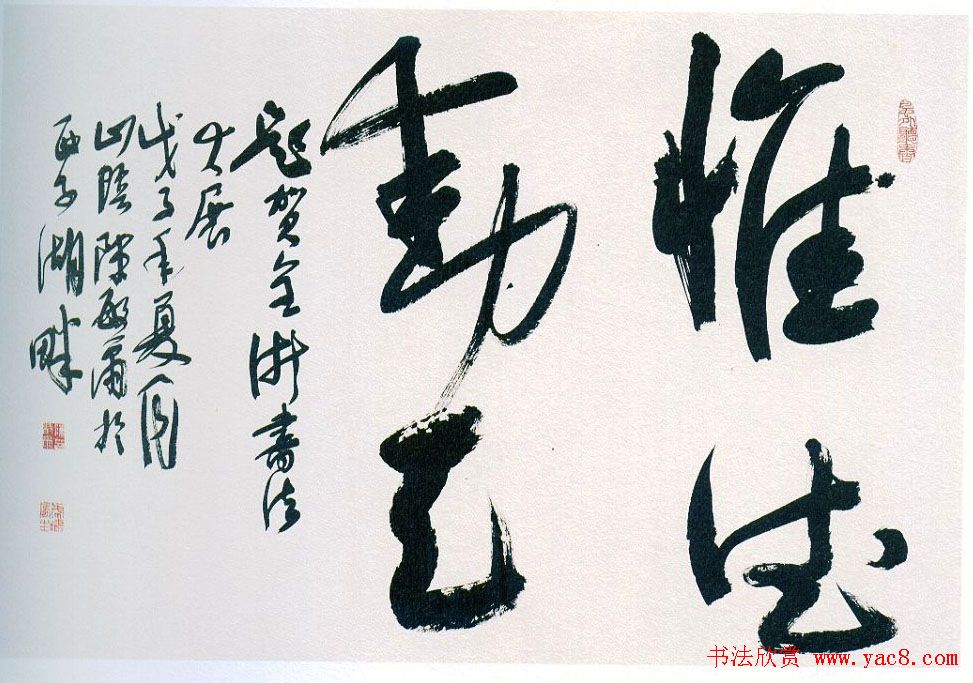 惟德
動天
題贺全浙書法
大展
戊子年夏月
山陰陳於
西子湖畔
书法欣赏 www.yac8.com